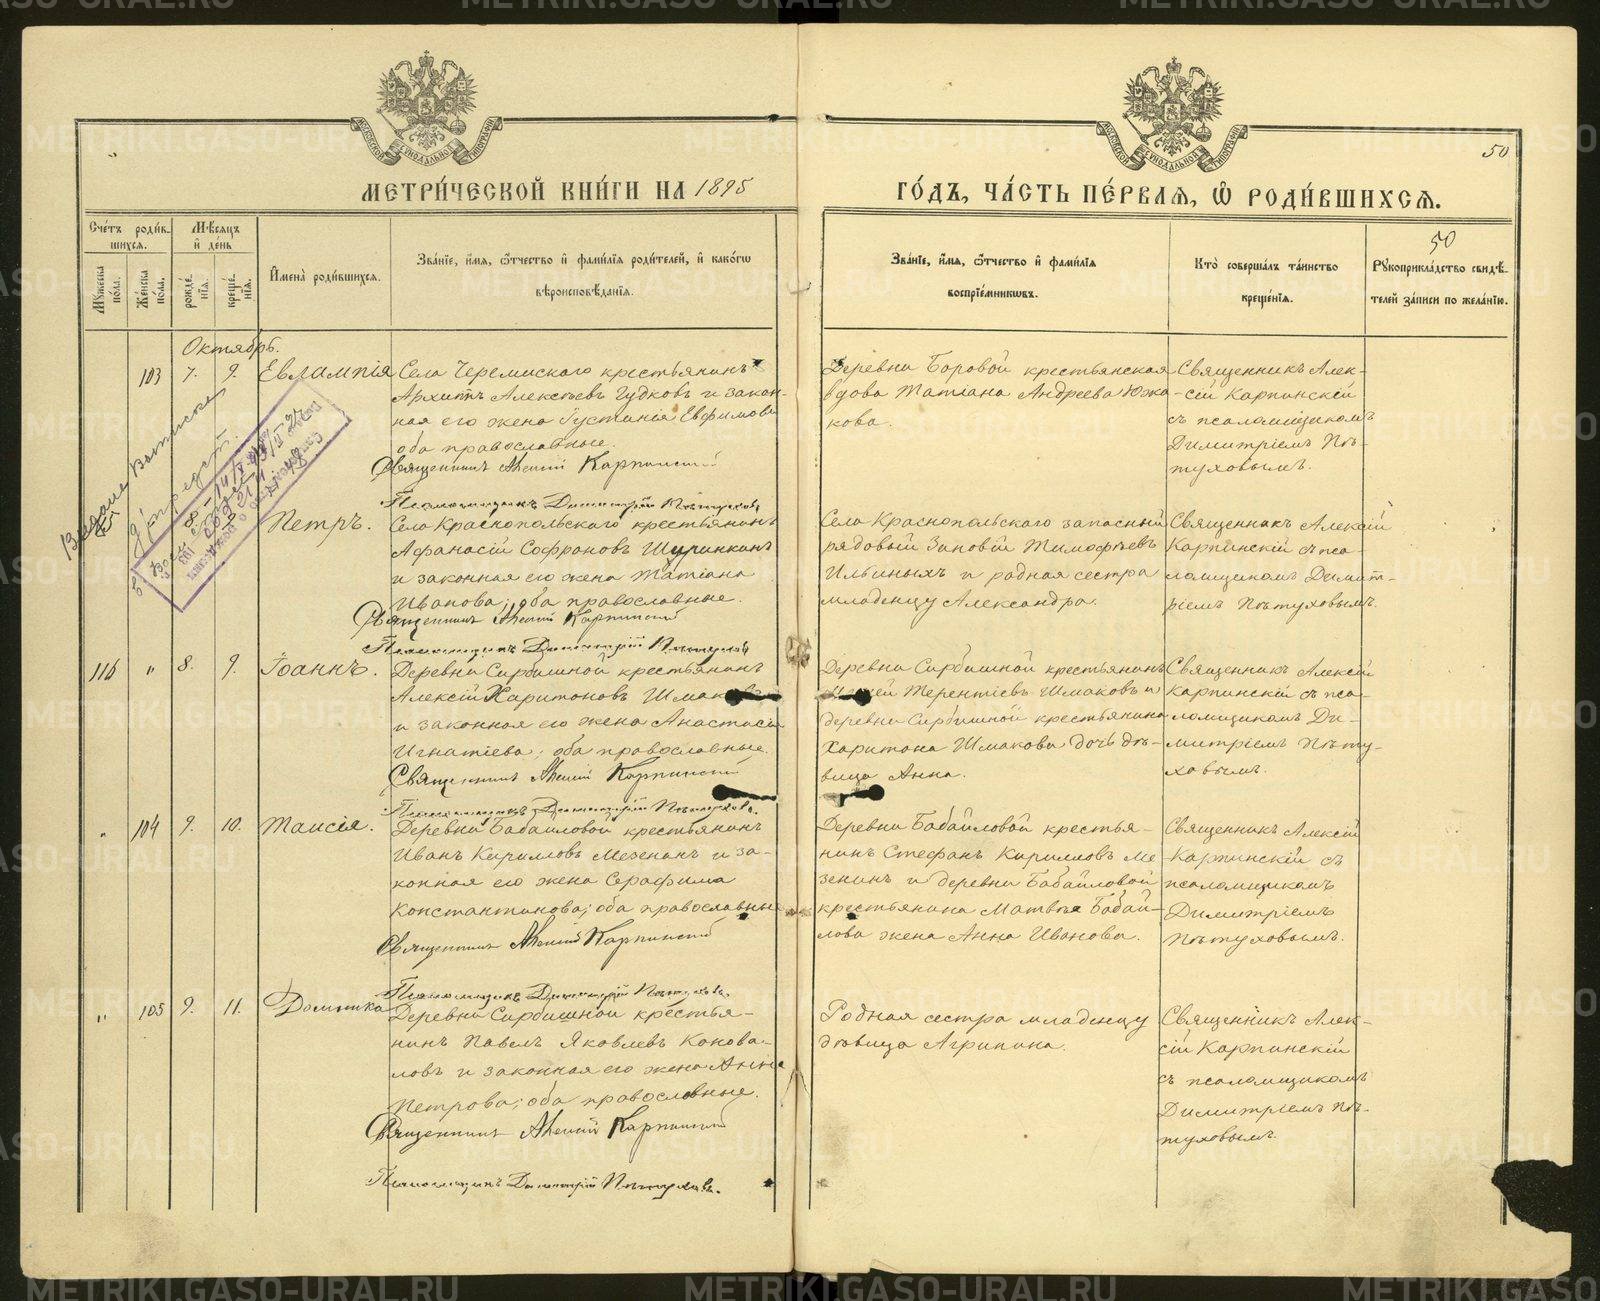 50
МЕТРИ́ЧЕСКОЙ КНИ́ГИ НА 1895
ГО́ДЪ, ЧА́СТЬ ПЕ́РВАЯ, Ѡ РОДИ́ВШИХСЯ.
Сче́тъ роди́в-
шихся.
Мѣ́сяцъ
и де́нь
Му́жеска по́ла.
Же́нска по́ла.
рожде́нїя.
креще́нїя.
И҆мена̀ роди́вшихся.
Зва́нїе, и҆́мя, ѻ҆́тчество и҆ фами́лїя роди́телей, и҆ како́гѡ
вѣроисповѣ́данїя.
Зва́нїе, и҆́мя, ѻ҆́тчество и҆ фами́лїя
воспрїе́мникѡвъ.
Кто̀ соверша́лъ та́инство
креще́нїя.
50
Рꙋкоприкла́дство свидѣ́-
телей за́писи по жела́нїю.
Октябрь.
103 7. 9. Евлампія
Села Черемисскаго крестьянинъ
Архипъ Алексѣевъ Гудковъ и закон-
ная его жена Іустинія Евфимова
оба православные.
Священникъ Алексій Карпинскій
Псаломщикъ Димитрій Пѣтуховъ
Деревни Боровой крестьянская
вдова Татіана Андреева Южа-
кова.
Священникъ Алек-
сій Карпинскій
съ псаломщикомъ
Димитріемъ Пѣ-
туховымъ.
8. Петръ.
Села Краснопольскаго крестьянинъ
Афанасій Софроновъ Шуринкинъ
и законная его жена Татіана
Иванова; оба православные.
Священникъ Алексій Карпинскій
Псаломщикъ Димитрій Пѣтуховъ
Села Краснопольскаго запасный
рядовый Зиновій Тимофѣевъ
Ильиныхъ и родная сестра
младенцу Александра.
Священникъ Алексій
Карпинскій съ пса-
ломщикомъ Димит-
ріемъ Пѣтуховымъ.
116 „ 8. 9. Іоаннъ.
Деревни Сирбишной крестьянинъ
Алексій Харитоновъ Шмаковъ
и законная его жена Анастасія
Игнатіева; оба православные.
Священникъ Алексій Карпинскій
Псаломщикъ Димитрій Пѣтуховъ.
Деревни Сирбишной крестьянинъ
Терентіевъ Шмаковъ и
деревни Сирбишной крестьянина
Харитона Шмакова дочь дѣ-
вица Анна.
Священникъ Алексій
Карпинскій съ пса-
ломщикомъ Ди-
митріемъ Пѣту-
ховымъ.
„ 104 9. 10. Таисія.
Деревни Бабайловой крестьянинъ
Иванъ Кирилловъ Мезенинъ и за-
конная его жена Серафима
Константинова; оба православные
Священникъ Алексій Карпинскій
Псаломщикъ Димитрій Пѣтуховъ.
Деревни Бабайловой крестья-
нинъ Стефанъ Кирилловъ Ме-
зенинъ и деревни Бабайловой
крестьянина Матвѣя Бабай-
лова жена Анна Иванова.
Священникъ Алексій
Карпинскій съ
псаломщикомъ
Димитріемъ
Пѣтуховымъ.
„ 105 9. 11. Домника
Деревни Сирбишной крестья-
нинъ Павелъ Яковлевъ Конова-
ловъ и законная его жена Анна
Петрова; оба православные.
Священникъ Алексій Карпинскій
Псаломщикъ Димитрій Пѣтуховъ.
Родная сестра младенцу
дѣвица Агрипина.
Священникъ Алек-
сій Карпинскій
съ псаломщикомъ
Димитріемъ Пѣ-
туховымъ.
METRIKI.GASO-URAL.RU